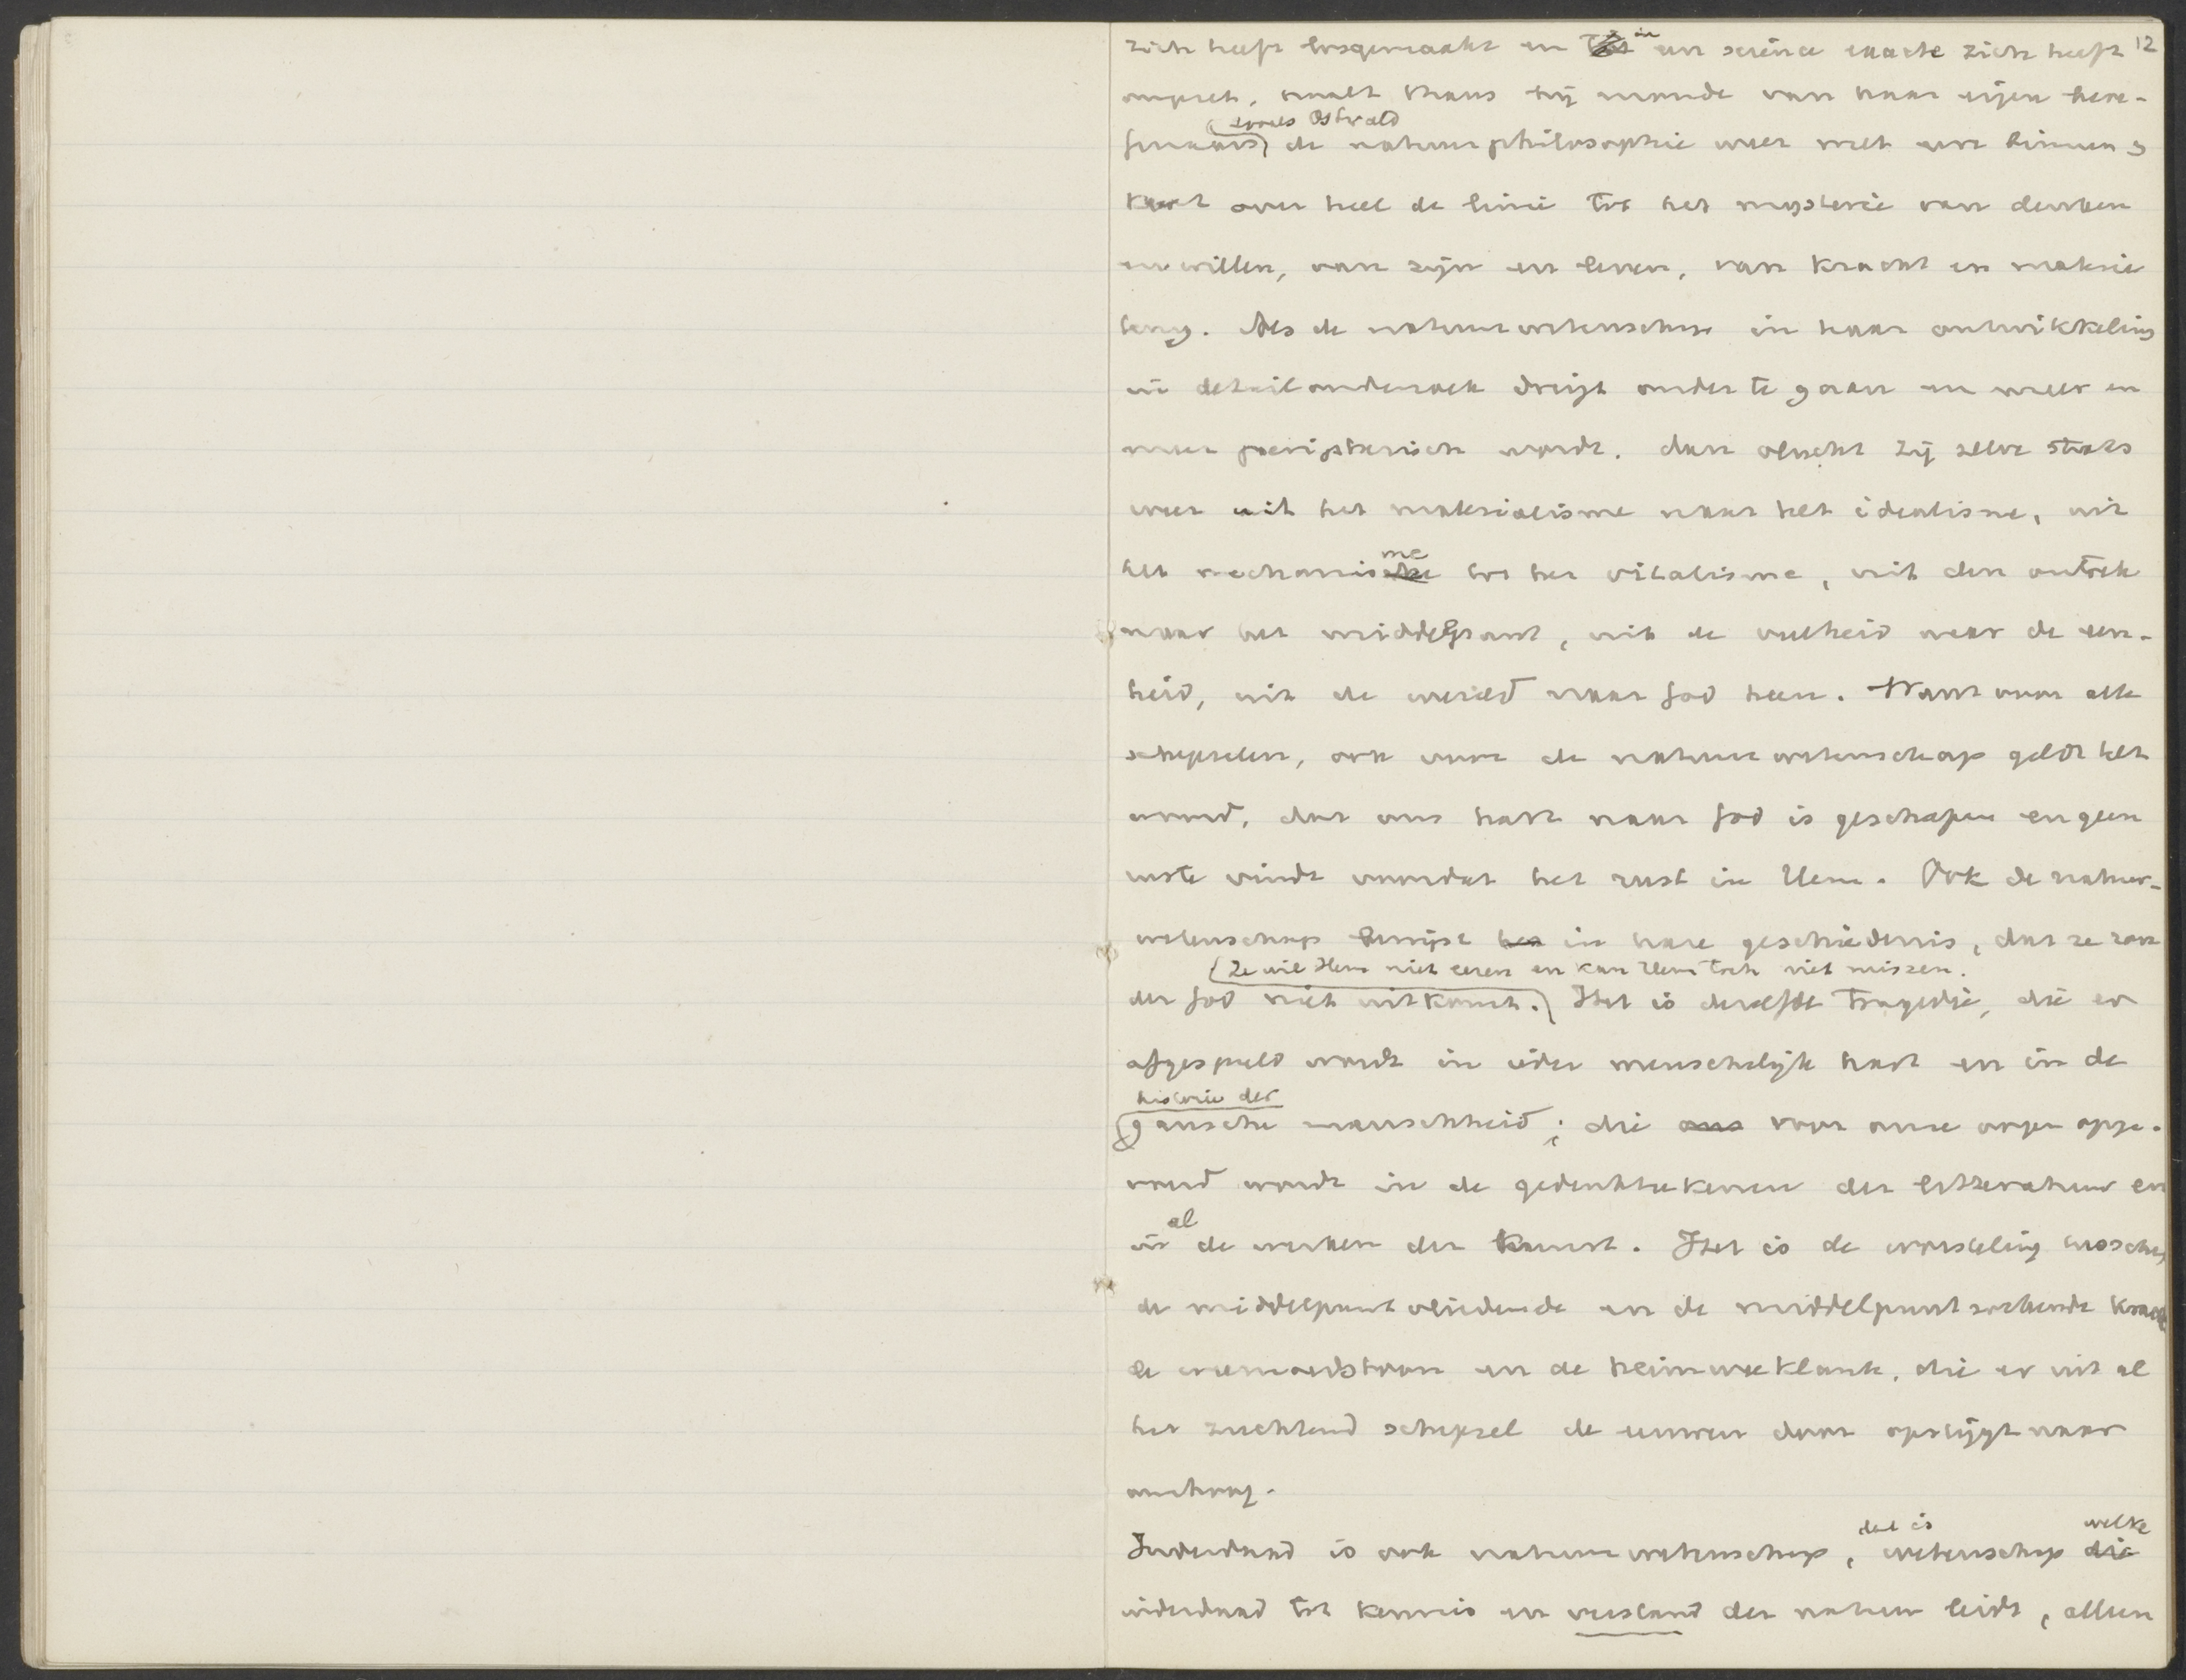 12
zich heeft losgemaakt en in een science exacte zich heeft
omgezet, smelt thans bij monde van haar eigen bero-
zooals Ostwald
de natuurphilosophie weer met een binnen &
keert over heel de linie tot het mysterie van denken
en willen, van zijn en leven, van kracht en materie
terug. Als de natuurwetenschap in haar ontwikkeling
in detailonderzoek dreigt onder te gaan en meer en
meer peripherisch wordt, dan vlucht zij zelve straks
weer uit het materialisme naar het idealisme, uit
het mechanisme tot het vitalisme, uit den omtrek
naar het middelpunt, uit de veelheid naar de een-
heid, uit de wereld naar God heen. Want voor alle
schepselen, ook voor de natuurwetenschap geldt het
woord, dat ons hart naar God is geschapen en geen
ruste vindt voordat het rust in Hem. Ook de natuur-
wetenschap bewijst in hare geschiedenis, dat ze zon
(Ze wil Hem niet eeren en kan Hem toch niet missen.
der God niet uitkomt.) Het is dezelfde tragedie, die er
afgespeeld wordt in ieder menschelijk hart en in de
historie der
gansche menschheid; die ons voor onze oogen opge-
voerd wordt in de gedenkteekenen der litteratuur en
in al de werken der kunst. Het is de worsteling tusschen
de middelpuntvliedende en de middelpuntzoekende kracht
de en de heimweeklank, die er uit al
het zuchtend schepsel de eeuwen door opstijgt naar
omhoog.
dat is welke
Inderdaad is ook natuurwetenschap, wetenschap die
inderdaad tot kennis en verstand der natuur leidt, alleen